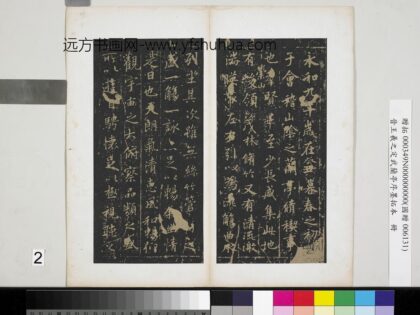 远方书画网-www.yfshuhua.com
永和九年歲在癸丑暮春之初
于會稽山陰之蘭亭脩禊事
也群賢畢至少長咸集此地
崇山
有峻領茂林脩竹又有清流激
湍暎帶左右引以為流觴曲水
列坐其次雖無絲竹管弦之
盛一觴一詠亦足以暢敘幽情
是日也天朗氣清惠風和暢仰
觀宇宙之大俯察品類之盛
所以遊目騁懷足以極視聽之
贈拓 000349N000000000(國贈 006131)
晉王羲之定武蘭亭序墨拓本 冊
2